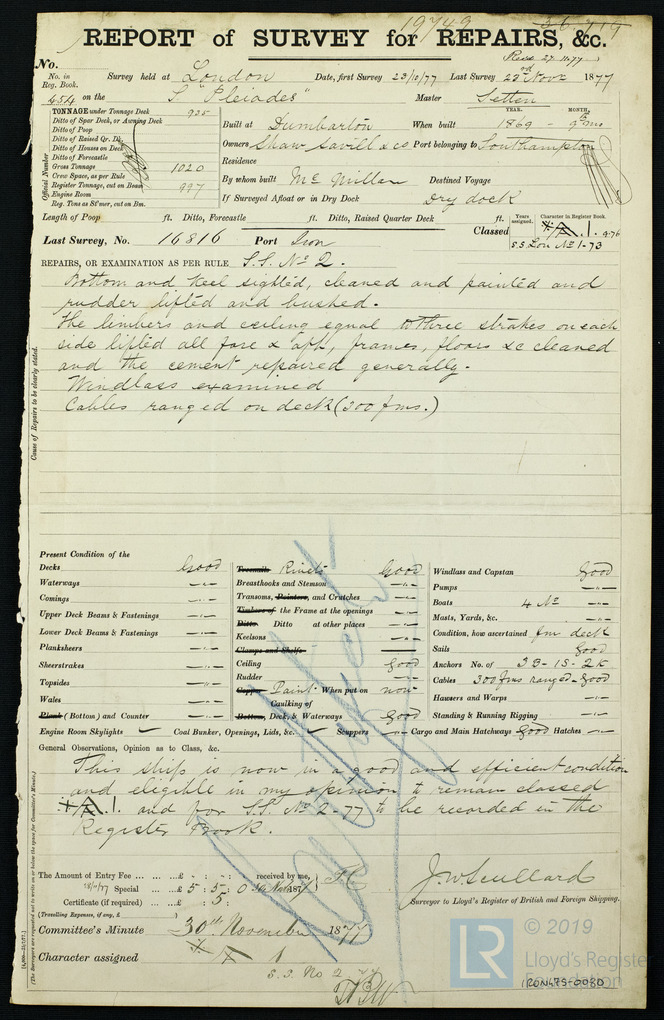 19749
36719
REPORT of SURVEY for REPAIRS, &c.
Recd 27.11.77
No.
No. in Reg. Book.
Survey held at London Date, first Survey 23/10/77 Last Survey 23rd Novr 1877
454 on the S "Pleiades" Master Setten
TONNAGE under Tonnage Deck 925
Ditto of Spar Deck, or Awning Deck
Ditto of Poop
Ditto of Raised Qr. Dk.
Ditto of Houses on Deck
Ditto of Forecastle
Gross Tonnage 1020
Crew Space, as per Rule
Register Tonnage, cut on Beam 997
Engine Room
Reg. Tons as St'mer, cut on Bm.
Official Number
YEAR. MONTH.
Built at Dumbarton When built 1869 - 9th mo
Owners Shaw Savill & Co Port belonging to Southampton
Residence
By whom built Mc Millan Destined Voyage
If Surveyed Afloat or in Dry Dock Dry dock
Length of Poop ft. Ditto, Forecastle ft. Ditto, Raised Quarter Deck ft.
Years assigned. Character in Register Book.
Classed A.1. 9.76
S.S. Lon No 1-73
Last Survey, No. 16816 Port Iron
REPAIRS, OR EXAMINATION AS PER RULE S.S. No 2.
Bottom and keel sighted, cleaned and painted and
rudder lifted and bushed.
The limbers and ceiling equal to three strakes on each
side lifted all fore & aft, frames, floors &c cleaned
and the cement repaired generally.
Windlass examined
Cables ranged on deck (300 fms.)
Cause of Repairs to be clearly stated.
Present Condition of the
Decks Good
Waterways -"-
Comings -"-
Upper Deck Beams & Fastenings -"-
Lower Deck Beams & Fastenings -"-
Planksheers -"-
Sheerstrakes -"-
Topsides -"-
Wales -"-
Plank (Bottom) and Counter -"-
Treenails Rivets Good
Breasthooks and Stemson -"-
Transoms, Pointers, and Crutches -"-
Timbers of the Frame at the openings -"-
Ditto Ditto at other places -"-
Keelsons -"-
Clamps and Shelfs
Ceiling Good
Rudder -"-
Copper Paint When put on now
Caulking of
Bottom, Deck, & Waterways Good
Windlass and Capstan Good
Pumps -"-
Boats 4 No -"-
Masts, Yards, &c. -"-
Condition, how ascertained fm deck
Sails Good
Anchors No. of 3B-1S-2K
Cables 300 fms ranged - Good
Hawsers and Warps -"-
Standing & Running Rigging -"-
Engine Room Skylights ✓ Coal Bunker, Openings, Lids, &c. ✓ Scuppers -"- Cargo and Main Hatchways Good Hatches -"-
General Observations, Opinion as to Class, &c.
This ship is now in a good and efficient condition
and eligible in my opinion to remain classed
A.1. and for S.S. No 2-77 to be recorded in the
Register Book.
The Amount of Entry Fee ... £ : : received by me,
Special ... £ 5 : 5 : 0
Certificate (if required) ... £ : 5 :
(Travelling Expenses, if any, £ )
J. W. Scullard
Surveyor to Lloyd's Register of British and Foreign Shipping.
Committee's Minute 30th November 1877
Character assigned A 1
S.S. No 2 77
© 2019
LR
Lloyd's Register
Foundation
IRON475-0030